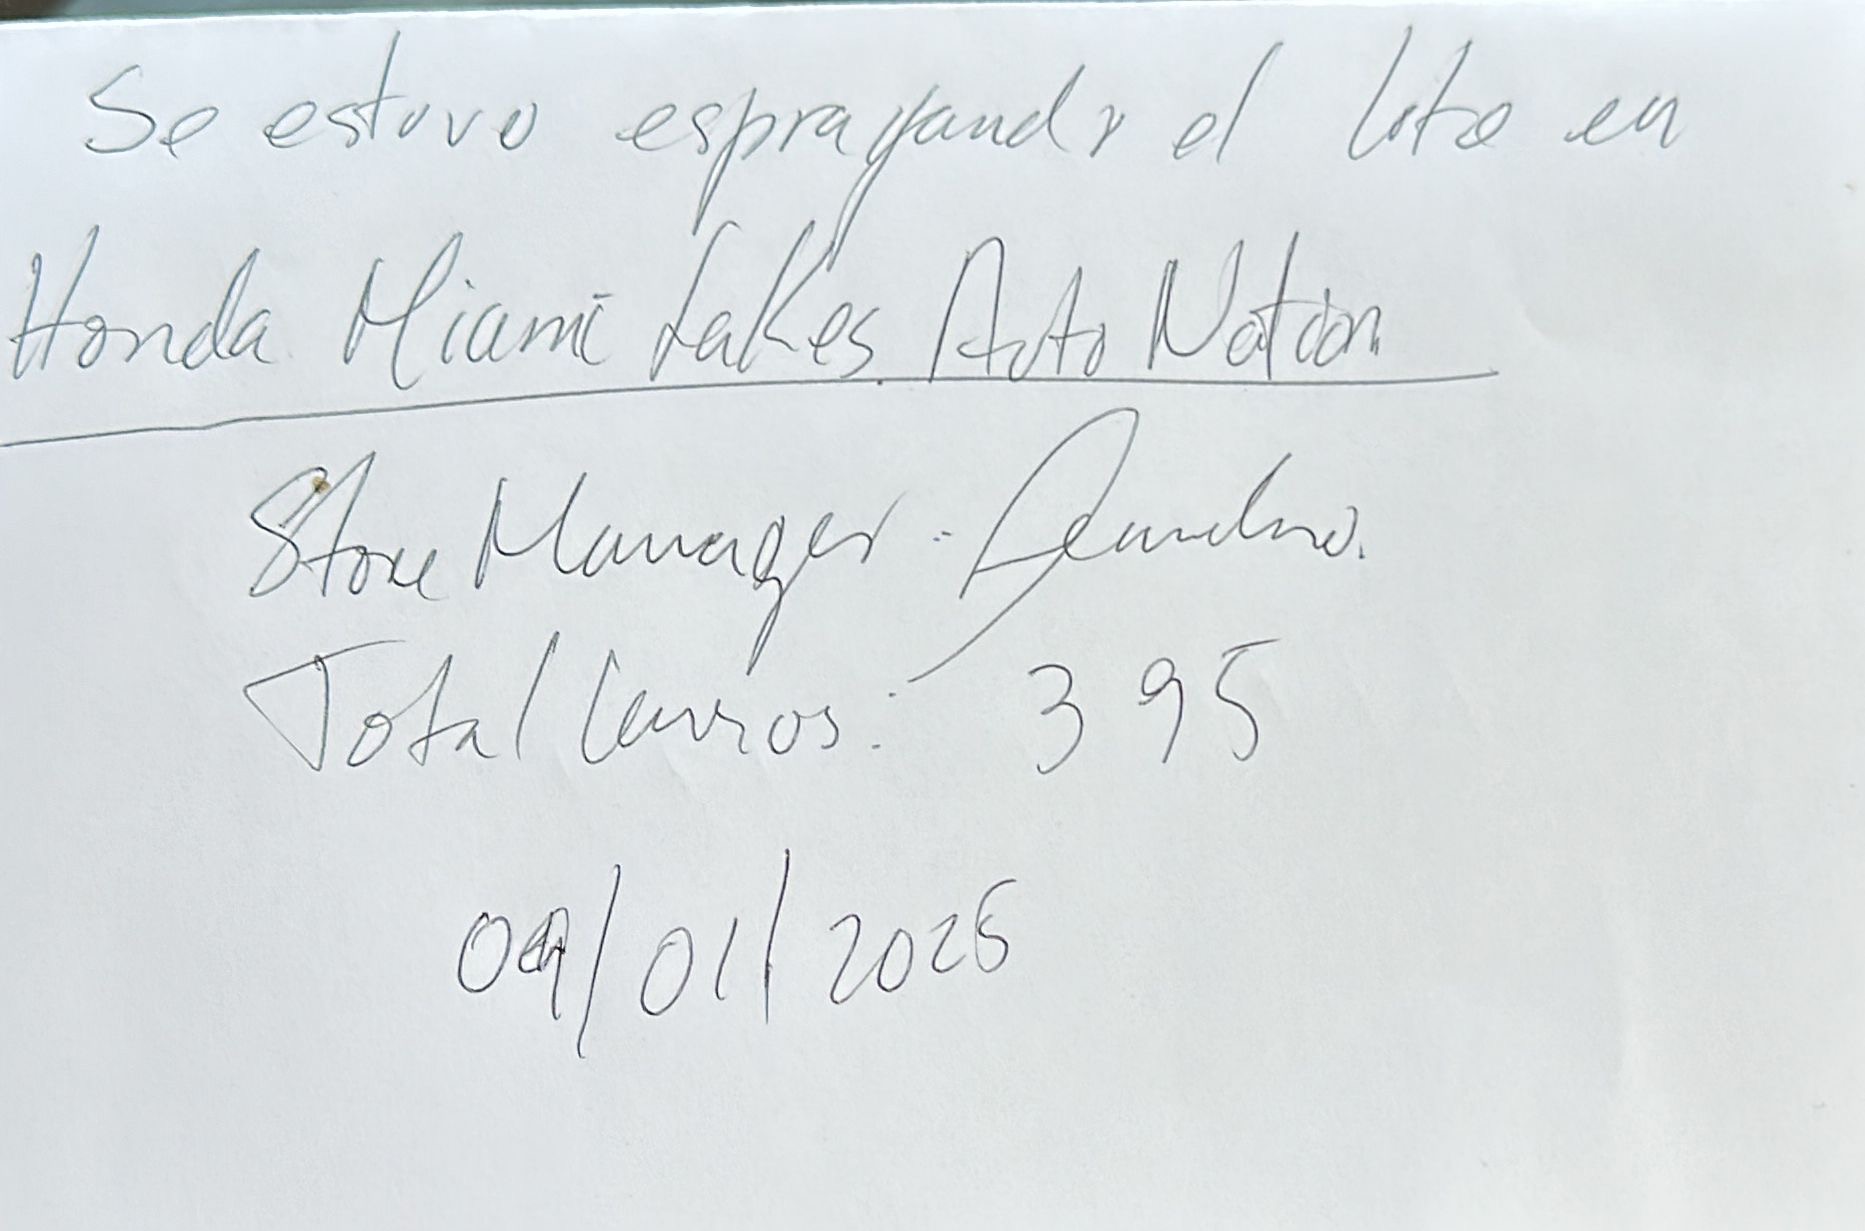 Se estuvo esprayando el lote en
Honda Miami Lakes Auto Nation
Store Manager:
Total Carros: 395
09/01/2025